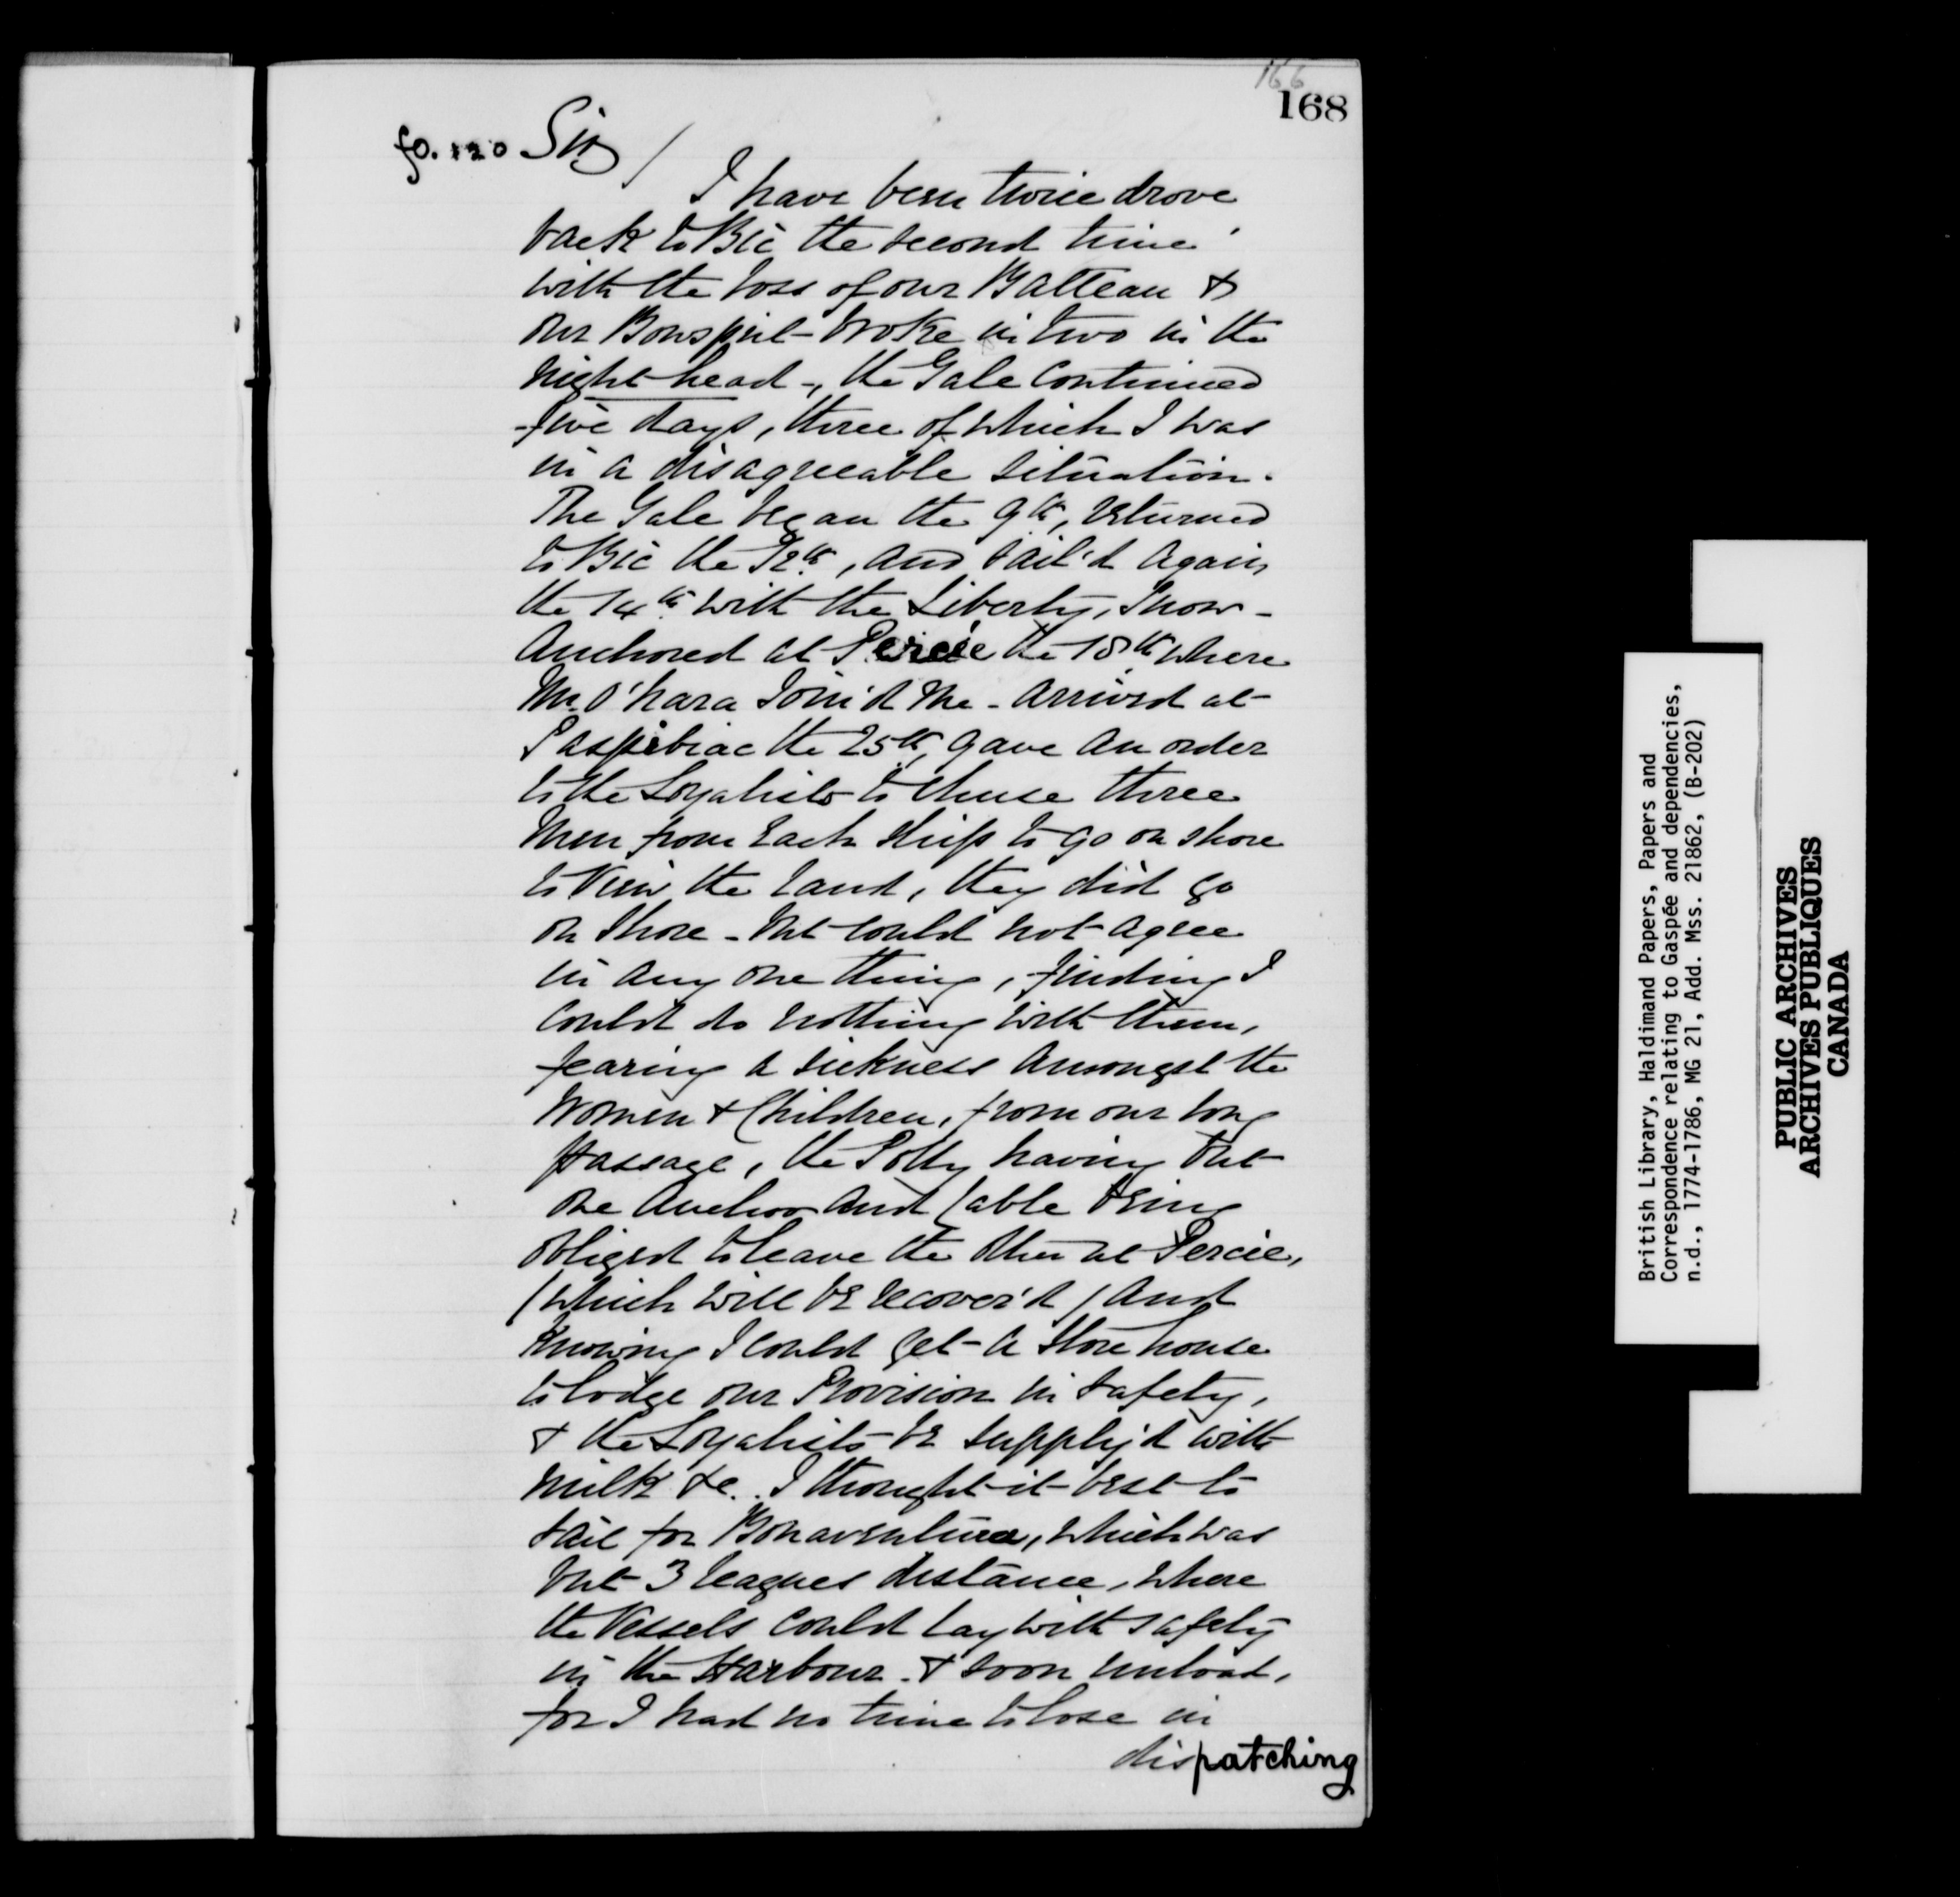 166
168
fo. 120 Sir /
I have been twice drove
back to Bic the second time
with the loss of our Batteau &
our Bowsprit broke in two in the
night-head -, the Gale Continued
five days, three of which I was
in a disagreeable situation.
The Gale began the 9th, returned
to Bic the 12th, and Sail'd Again
the 14th with the Liberty, Snow -
Anchored at Percée the 18th where
Mr. O'hara Join'd Me - Arrived at
Paspibiac the 25th, gave An order
to the Loyalists to Chuse three
Men from Each Ship to go on shore
to View the Land, they did go
on Shore - but could not agree
in Any one thing, finding I
Could do nothing with them,
fearing a sickness Amongst the
Women & Children, from our long
Passage, the Polly having but
one Anchor And Cable being
obliged to leave the other at Percée,
(which will be recover'd) And
Knowing I could get a Store house
to lodge our Provision in Safety,
& the Loyalists be supply'd with
Milk &c. I thought it best to
Sail for Bonaventure, which was
but 3 leagues distance, where
the Vessels Could lay with safety
in the Harbour & soon unload,
for I had no time to lose in
dispatching
British Library, Haldimand Papers, Papers and
Correspondence relating to Gaspée and dependencies,
n.d., 1774-1786, MG 21, Add. Mss. 21862, (B-202)
PUBLIC ARCHIVES
ARCHIVES PUBLIQUES
CANADA